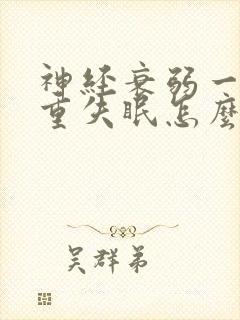 神经衰弱一
重失眠怎麽
吴群弟